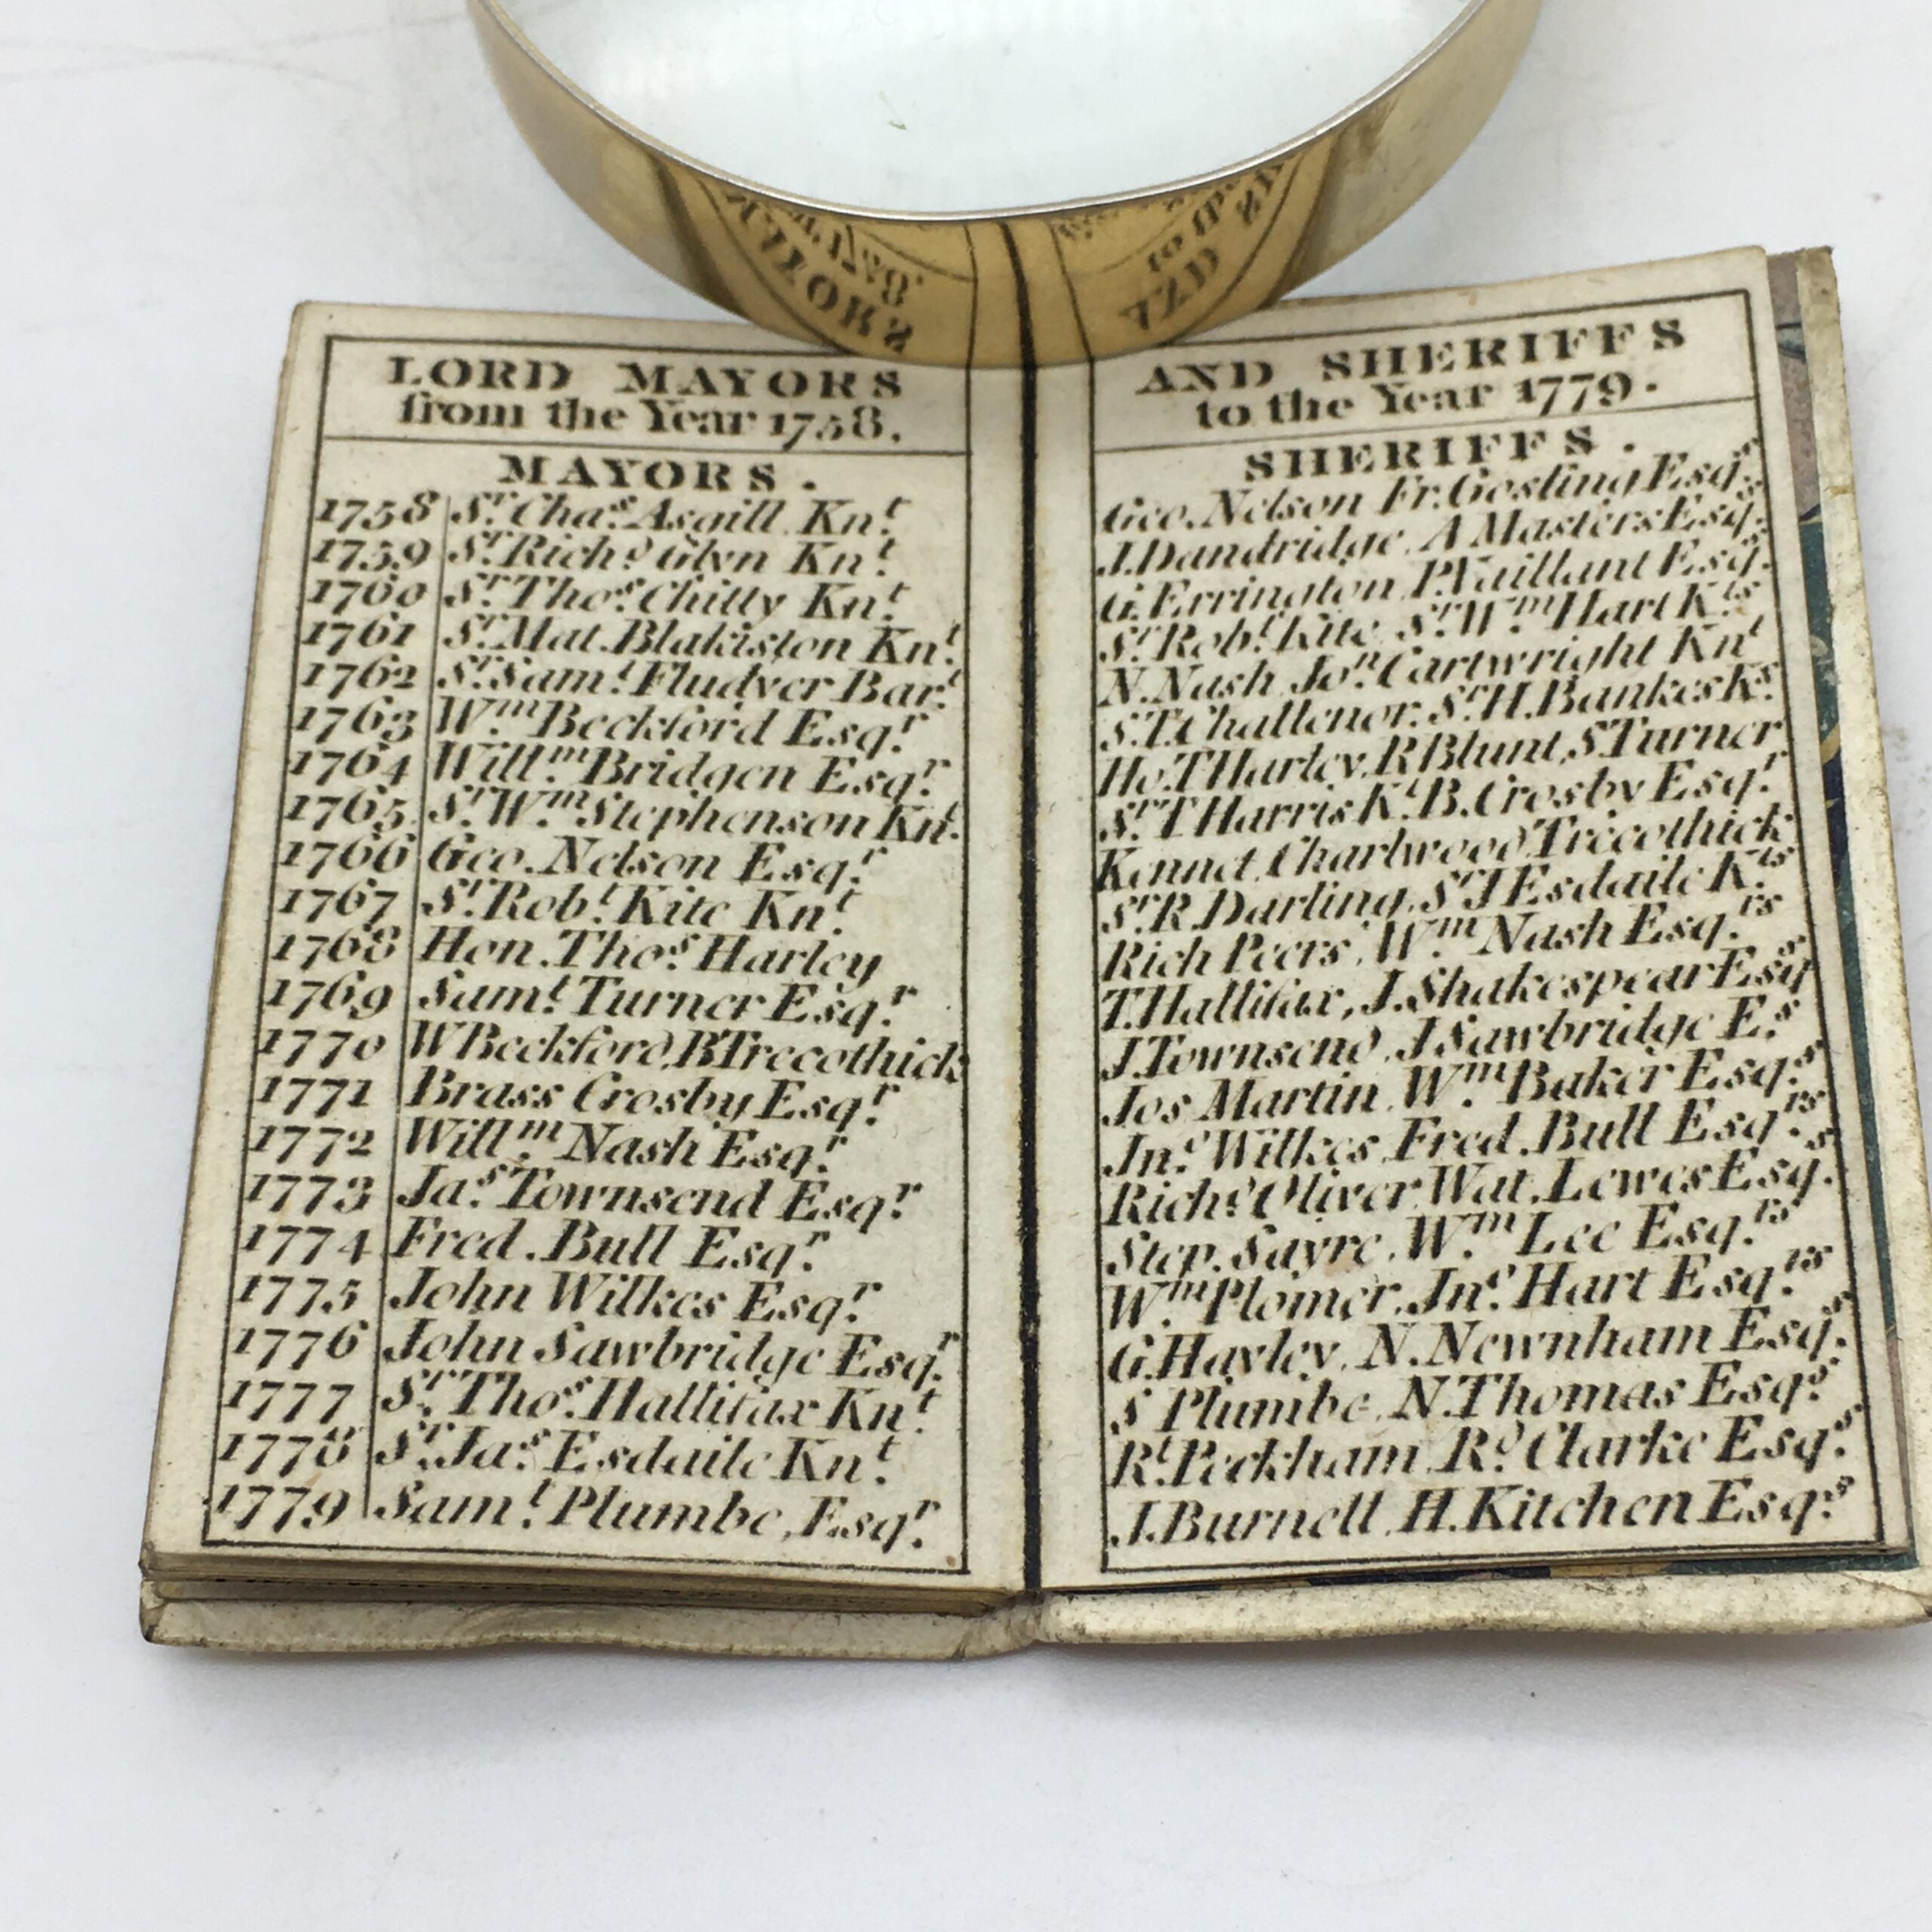 LORD MAYORS
from the Year 1758.
MAYORS.
1758 Sr. Chas. Asgill Knt.
1759 Sr. Richd. Glyn Knt.
1760 Sr. Thos. Chitty Knt.
1761 Sr. Mat. Blakiston Knt.
1762 Sr. Saml. Fludyer Bart.
1763 Wm. Beckford Esqr.
1764 Willm. Bridgen Esqr.
1765 Sr. Wm. Stephenson Knt.
1766 Geo. Nelson Esqr.
1767 Sr. Robt. Kite Knt.
1768 Hon. Thos. Harley
1769 Saml. Turner Esqr.
1770 W Beckford, B Trecothick
1771 Brass Crosby Esqr.
1772 Willm. Nash Esqr.
1773 Jas. Townsend Esqr.
1774 Fred. Bull Esqr.
1775 John Wilkes Esqr.
1776 John Sawbridge Esqr.
1777 Sr. Thos. Hallifax Knt.
1778 Sr. Jas. Esdaile Knt.
1779 Saml. Plumbe, Esqr.
AND SHERIFFS
to the Year 1779.
SHERIFFS.
Geo. Nelson Fr. Gosling Esqs.
J. Dandridge, A Masters Esqs.
G. Errington P. Vaillant Esqs.
Sr. Robt. Kite, Sr. Wm. Hart Kts.
N. Nash Jon. Cartwright Knt
S. T. Challenor, Sr. H. Bankes Ks.
Ho. T Harley, R Blunt, S Turner
Sr. T Harris Kt. B. Crosby Esqr.
Kennet, Charlwood, Trecothick
Sr R. Darling, Sr J Esdaile Kts.
Rich Peers, Wm. Nash Esqrs.
T. Hallifax, J. Shakespear Esqs
J. Townsend, J Sawbridge Es.
Jos Martin, Wm. Baker Esqs.
Jno. Wilkes Fred. Bull Esqrs.
Richd. Oliver, Wat. Lewes Esqs.
Step. Sayre, Wm. Lee Esqrs.
Wm. Plomer, Jno. Hart Esqrs.
G. Hayley, N. Newnham Esqs.
S Plumbe, N. Thomas Esqs.
Rt. Peckham Rd. Clarke Esqs.
J. Burnell H. Kitchen Esqs.